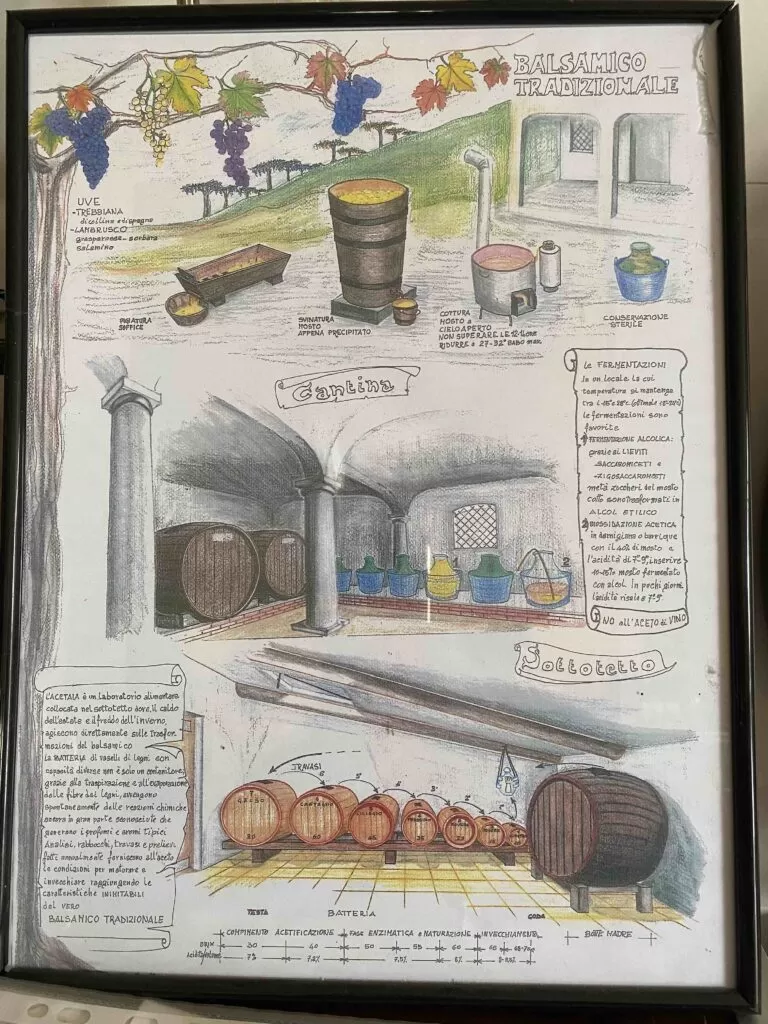 BALSAMICO
TRADIZIONALE
UVE
-TREBBIANA
di collina e di spagna
-LAMBRUSCO
grasparossa - sorbara
salamino
PIGIATURA
SOFFICE
SVINATURA
MOSTO
APPENA PRECIPITATO
COTTURA
MOSTO a
CIELO APERTO
NON SUPERARE LE 12-14 ore
RIDURRE a 27-32° BABO max.
CONSERVAZIONE
STERILE
Cantina
Le FERMENTAZIONI
In un locale la cui
temperatura si mantenga
tra i
le fermentazioni sono
favorite
1 FERMENTAZIONE ALCOLICA:
grazie ai LIEVITI
SACCAROMICETI e
-ZIGOSACCAROMICETI
metà zuccheri del mosto
cotto sono trasformati in
ALCOL ETILICO
2 BIOSSIDAZIONE ACETICA
in damigiana o barrique
con il 40% di mosto a
l'acidità di 7°-9°, inserire
mosto fermentato
con alcol. In pochi giorni
l'acidità risale a 7°-9°
NO all'ACETO di VINO
2
Sottotetto
L'ACETAIA è un Laboratorio alimentare
collocata nel sottotetto dove, il caldo
dell'estate e il freddo dell'inverno,
agiscono direttamente sulle trasfor-
mazioni del balsamico
La BATTERIA di vaselli di legni con
capacità diverse non è solo un contenitore,
grazie alla traspirazione e all'evaporazione
dalle fibre dei legni, avvengono
spontaneamente delle reazioni chimiche
ancora in gran parte sconosciute che
generano i profumi e aromi tipici
Analisi, rabbocchi, travasi e prelievi
fatti annualmente forniscono all'aceto
le condizioni per maturare e
invecchiare raggiungendo le
caratteristiche INIMITABILI
del VERO
BALSAMICO TRADIZIONALE
TRAVASI
6° 5° 4° 3° 2°
GELSO
CASTAGNO
CILIEGIO
80
60
45
35
25
TESTA
BATTERIA
CODA
COMPIMENTO ACETIFICAZIONE
FASE ENZIMATICA e MATURAZIONE
INVECCHIAMENTO
BOTTE MADRE
BRIX 30 40 50 55 60
7% 7,2% 7,5% 8%